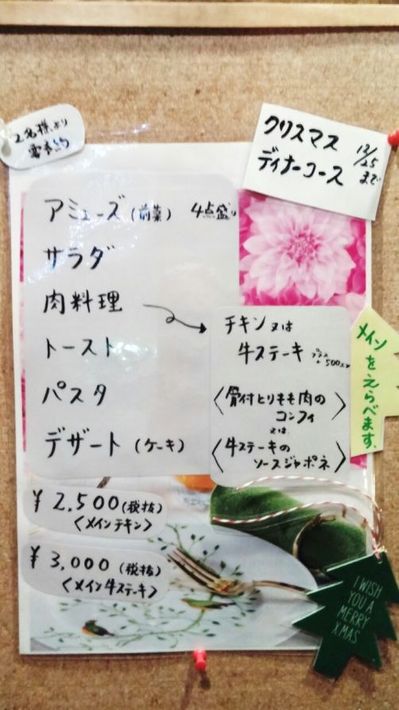 2名様より
クリスマス
ディナーコース
12/25
まで
アミューズ(前菜) 4点盛り
サラダ
肉料理
トースト
パスタ
デザート(ケーキ)
チキン又は
牛ステーキ プラス+500エン
〈骨付とりもも肉の
コンフィ〉
又は
〈牛ステーキの
ソースジャポネ〉
メインをえらべます。
¥2,500(税抜)
〈メインチキン〉
¥3,000(税抜)
〈メイン牛ステーキ〉
I WISH
YOU A
MERRY
XMAS